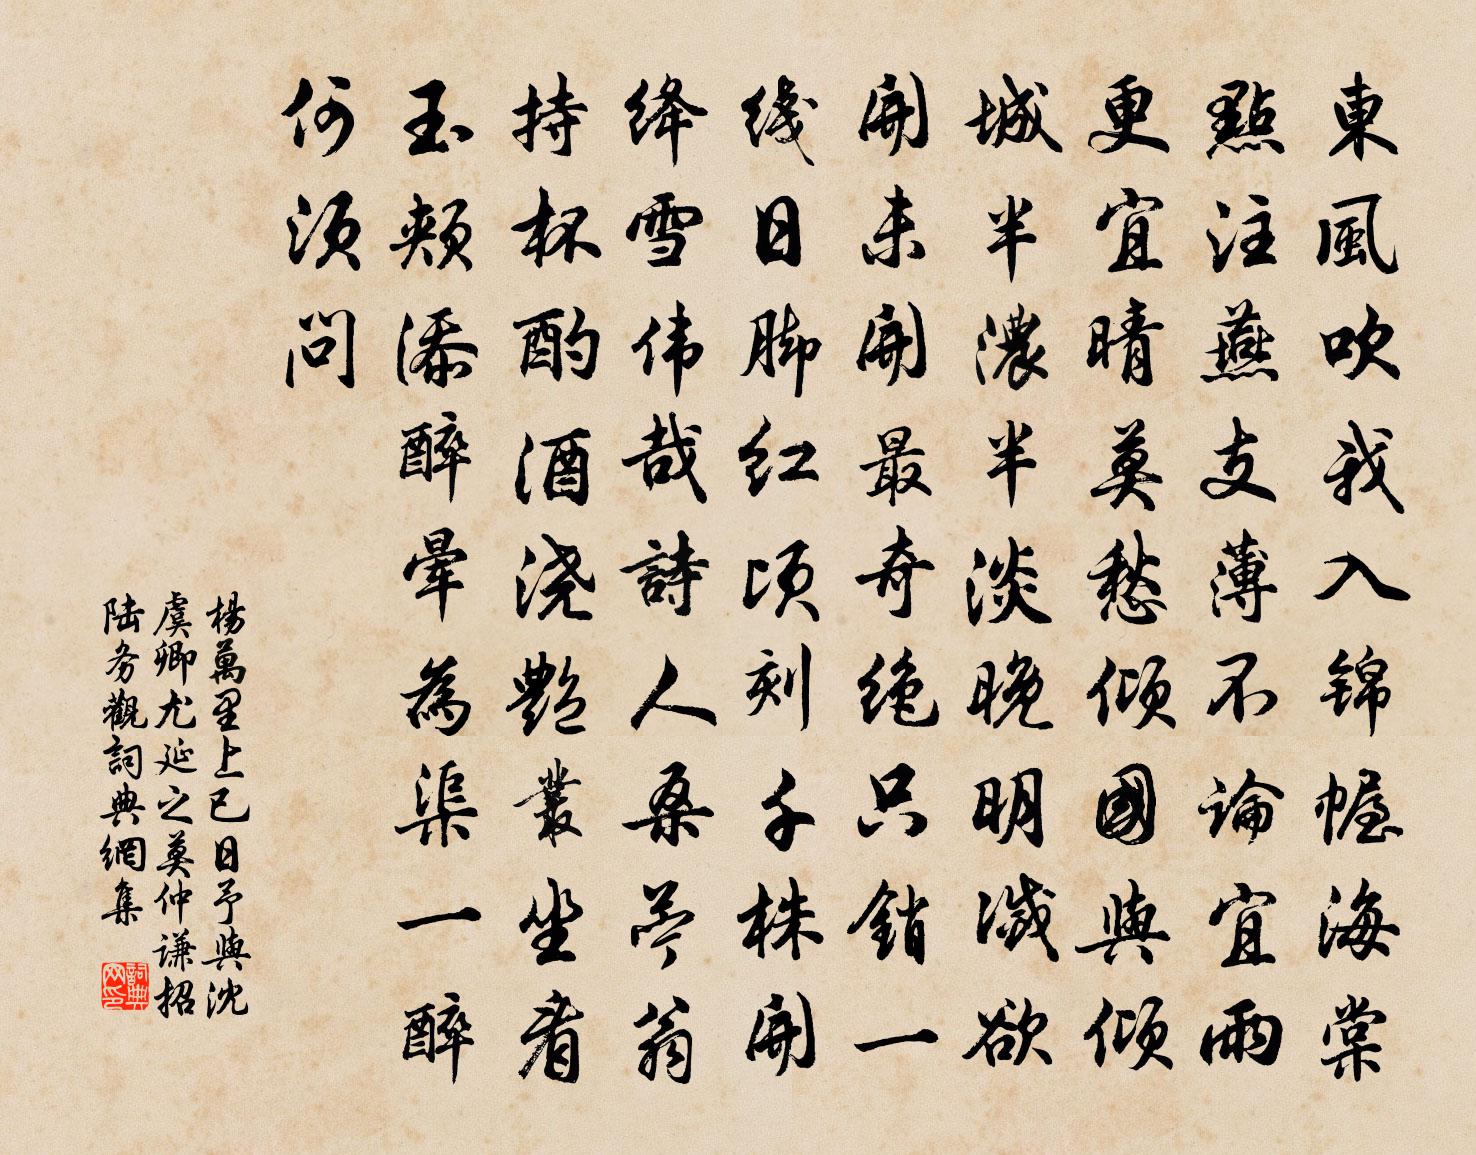 東風吹我入锦幄海棠
點注燕支薄不論宜雨
更宜晴莫愁倾國與倾
城半濃半淡晚明滅欲
開未開最奇绝只銷一
线日脚红顷刻千株開
绛雪伟哉詩人桑苎翁
持杯酌酒浇艷叢坐看
玉颊添醉暈為渠一醉
何须问
楊萬里上巳日予與沈
虞卿尤延之莫仲谦招
陆务觀詞典網集
詞典网印